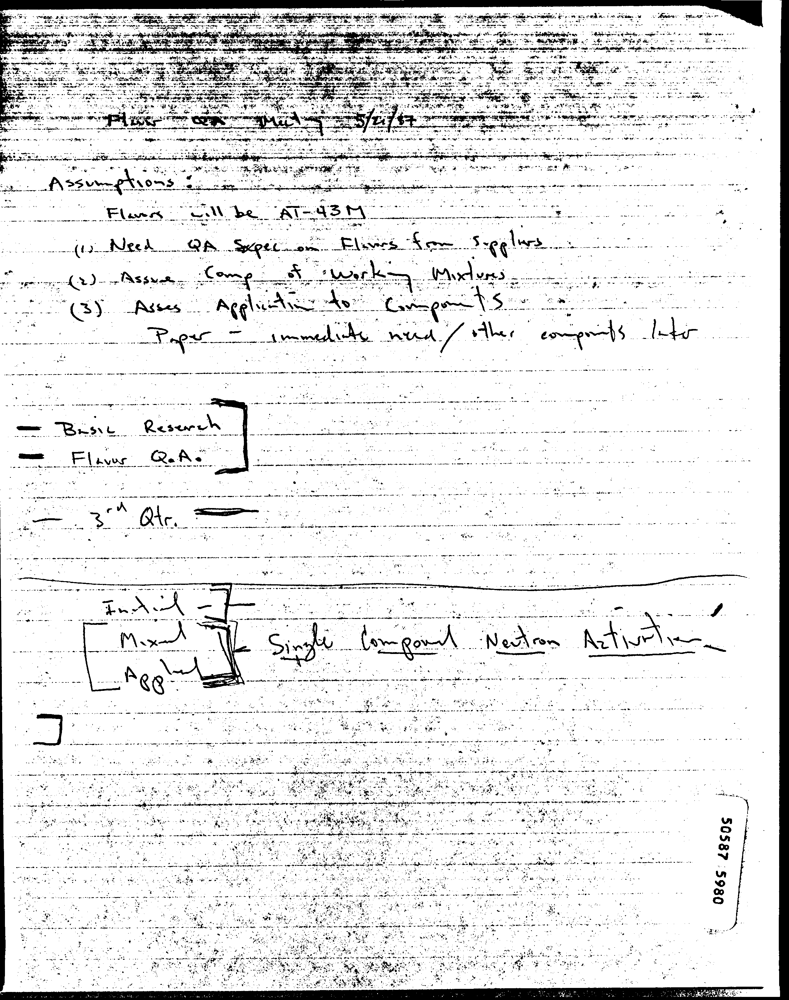 Flavor QA Meeting 5/21/87
Assumptions:
Flavors will be AT-43M
(1) Need QA Sepec on Flavors from Suppliers
(2) Assure Comp of Working Mixtures
(3) Asses Application to Components
Paper - immediate need / other components later
- Basic Research
- Flavor Q.A.
- 3rd Qtr.
Initial -
Mixed
Applied
Single Compound Neutron Activation
50587 5980